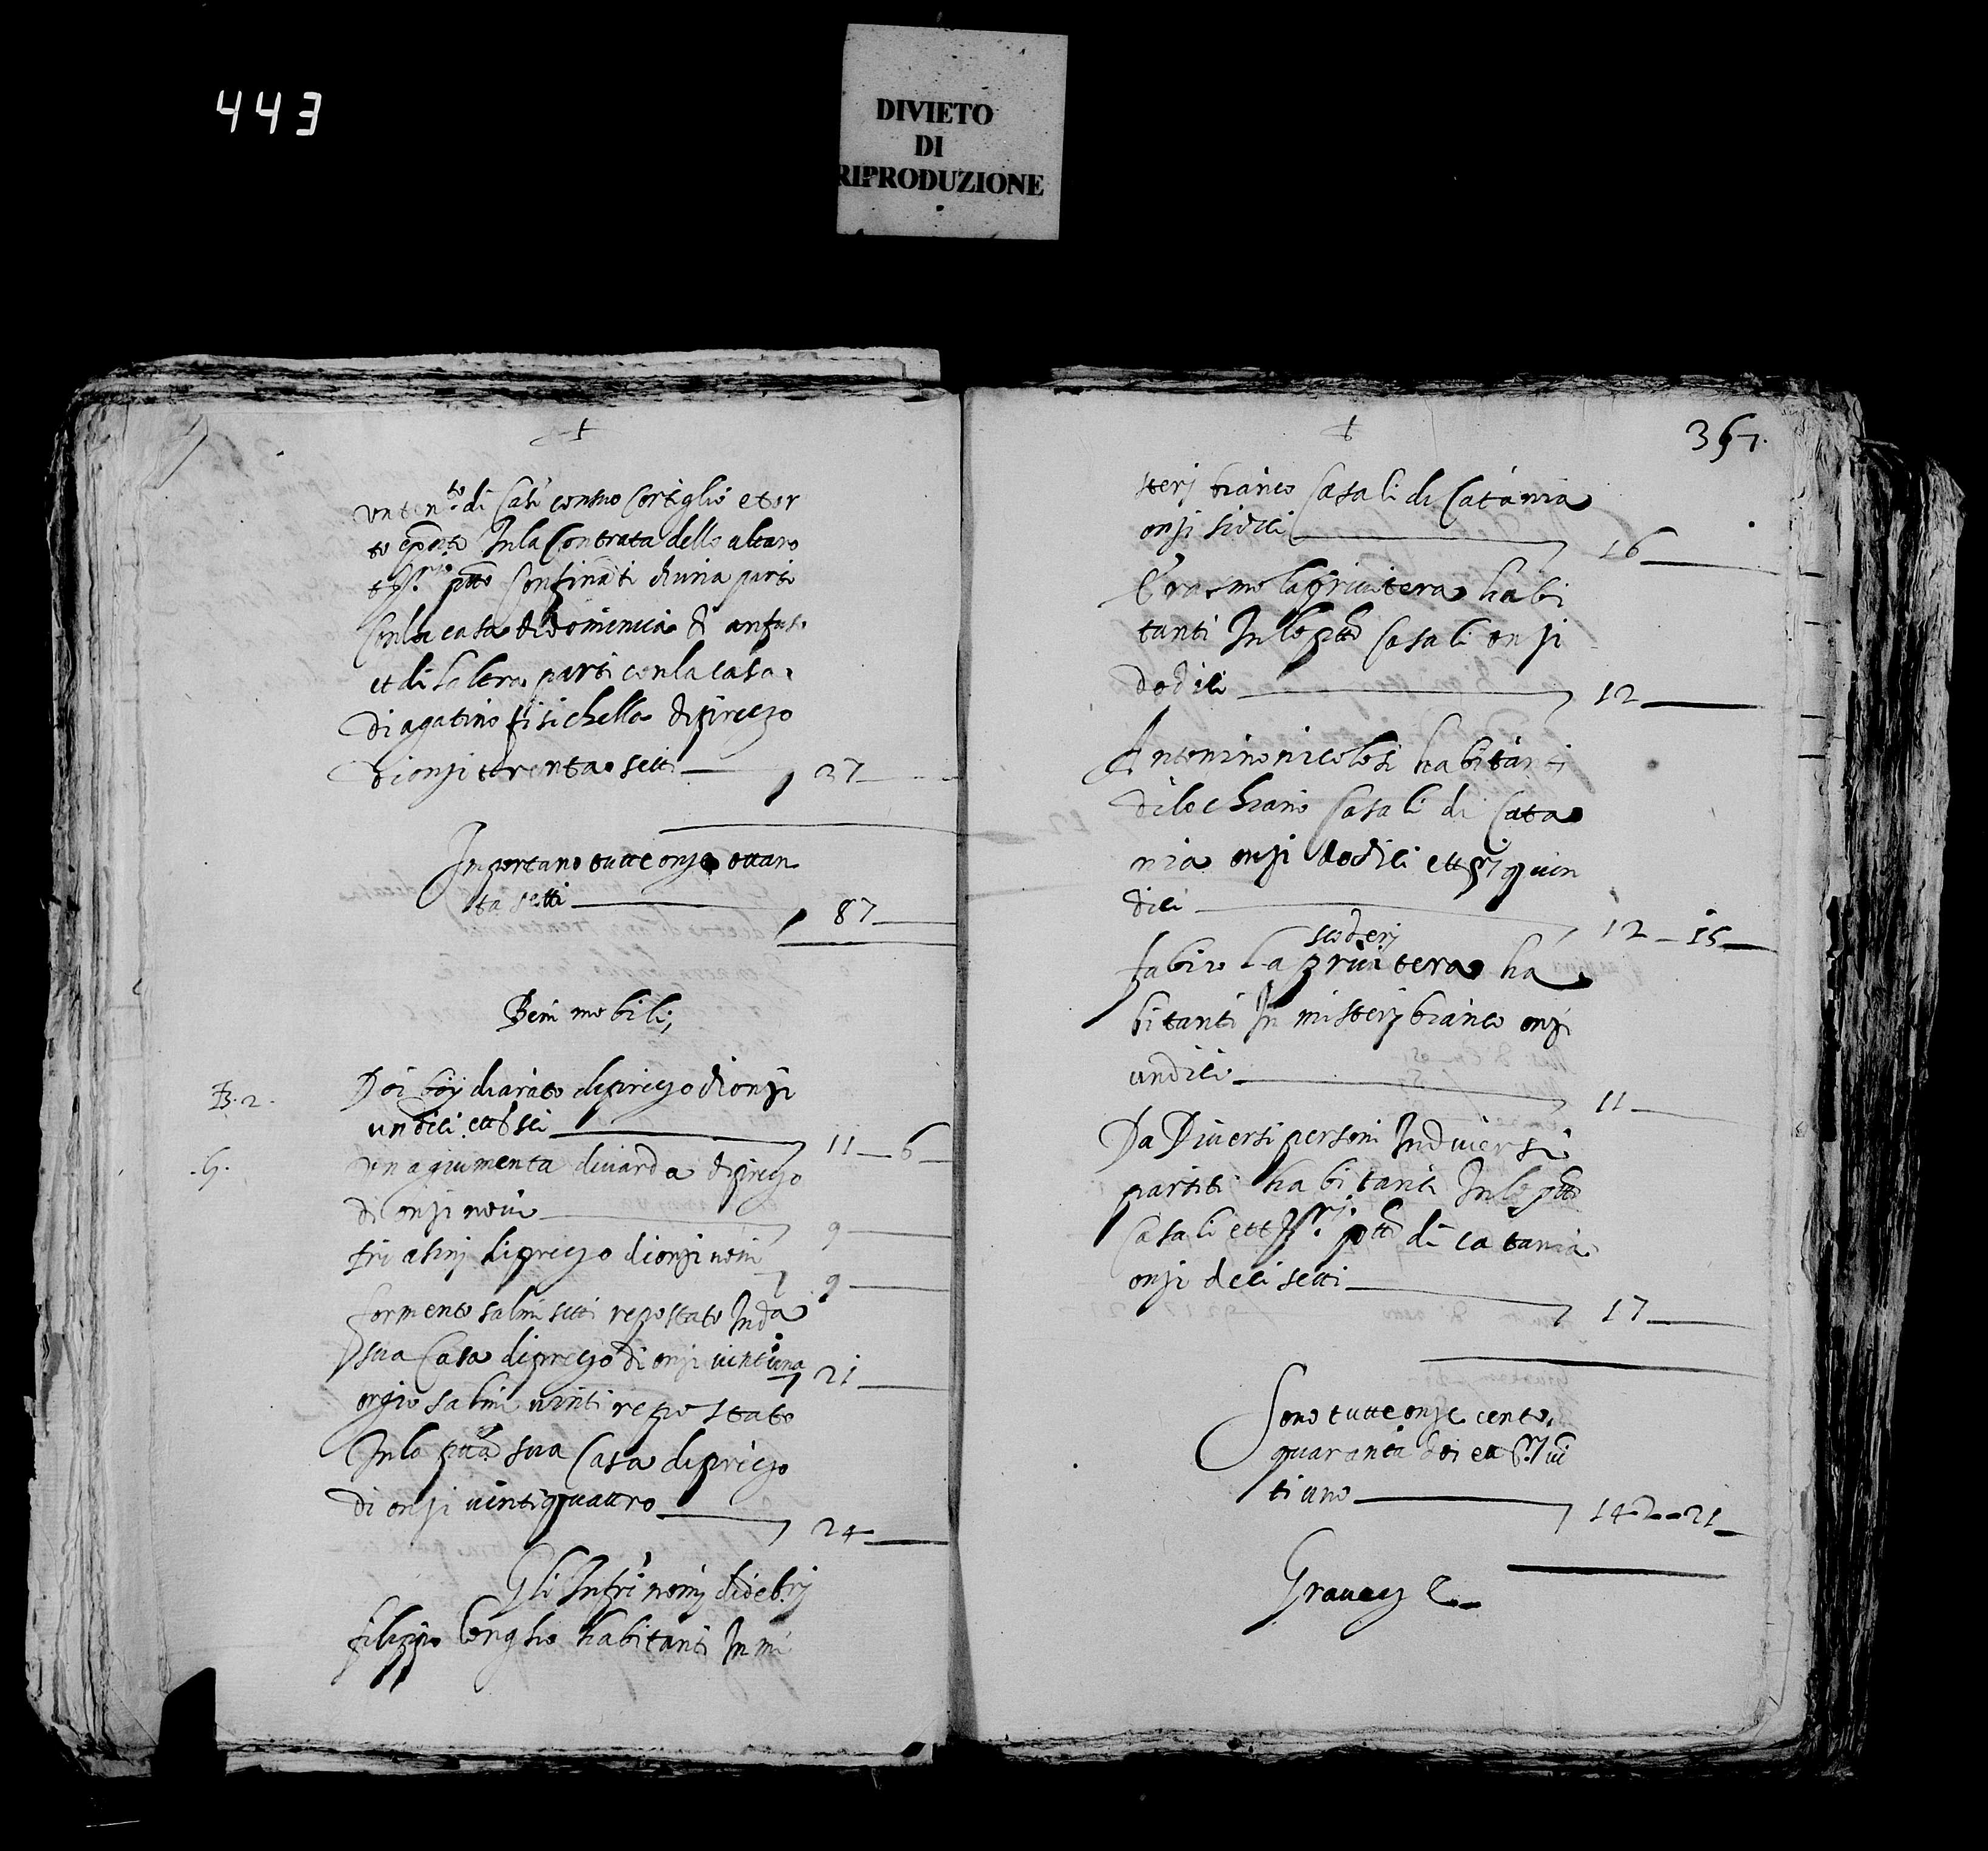 443
DIVIETO
DI
RIPRODUZIONE
un ten.to di Casi con suo Cortiglio et or
to In la Contrata dello altaro
t ptto Confinati di una parti
con la casa di dominica di anfuso
et di la ltra parti con la casa
di agatino fisichella di prezzo
di onzi trenta setti 37
Importano tutte onze ottan
ta setti 87
Beni mobili;
B. 2. Doi boy di arato di prezo di onzi
undici ett sei 11 6
.G. una giumenta di prezo
di onzi novi 9
tri asinj di prezo di onzi novi 9
formento salmi setti repostato In da
sua Casa di prezo di onzi vintiuna 21
orgio salmi vinti repostato
In la ptta sua Casa di prezo
di onzi vintiquattro 24
Gli Infri nomj di deb.rj
filippo longho habitanti In mi
367.
sterj bianco Casali di Catania
onzi sidici 16
Erasmo la privitera habi
tanti In lo ptto Casali onzi
dodici 12
Antonino nicolosi habitanti
di lo chiano Casali di Cata
nia onzi dodici ett tt.rj quin
dici 12 15
scuderj
fabio la privitera ha
bitanti In misterj bianco onzi
undici 11
Da Diversi personi In diversi
partiti habitanti In lo ptto
Casali ett ptto di catania
onzi deci setti 17
Sono tutte onze cento
quaranta doi ett tt.rj vi
ti uno 142 21